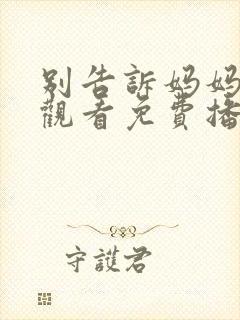 別告訴媽媽
觀看免費播
守護君